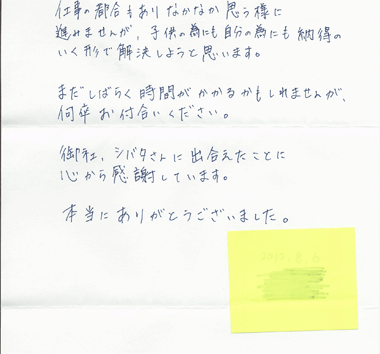 仕事の都合もありなかなか思う様に
進みませんが、子供の為にも自分の為にも納得の
いく形で解決しようと思います。
まだしばらく時間がかかるかもしれませんが、
何卒お付合いください。
御社、シバタさんに出合えたことに
心から感謝しています。
本当にありがとうございました。